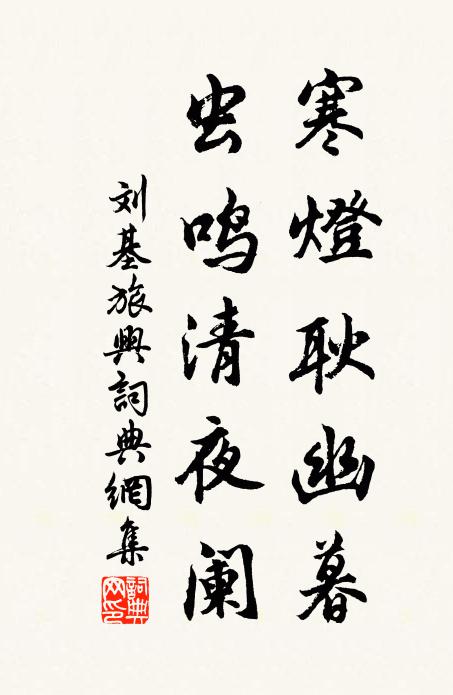 寒燈耿幽暮
虫鸣清夜阑
刘基旅興詞典網集
詞典网印